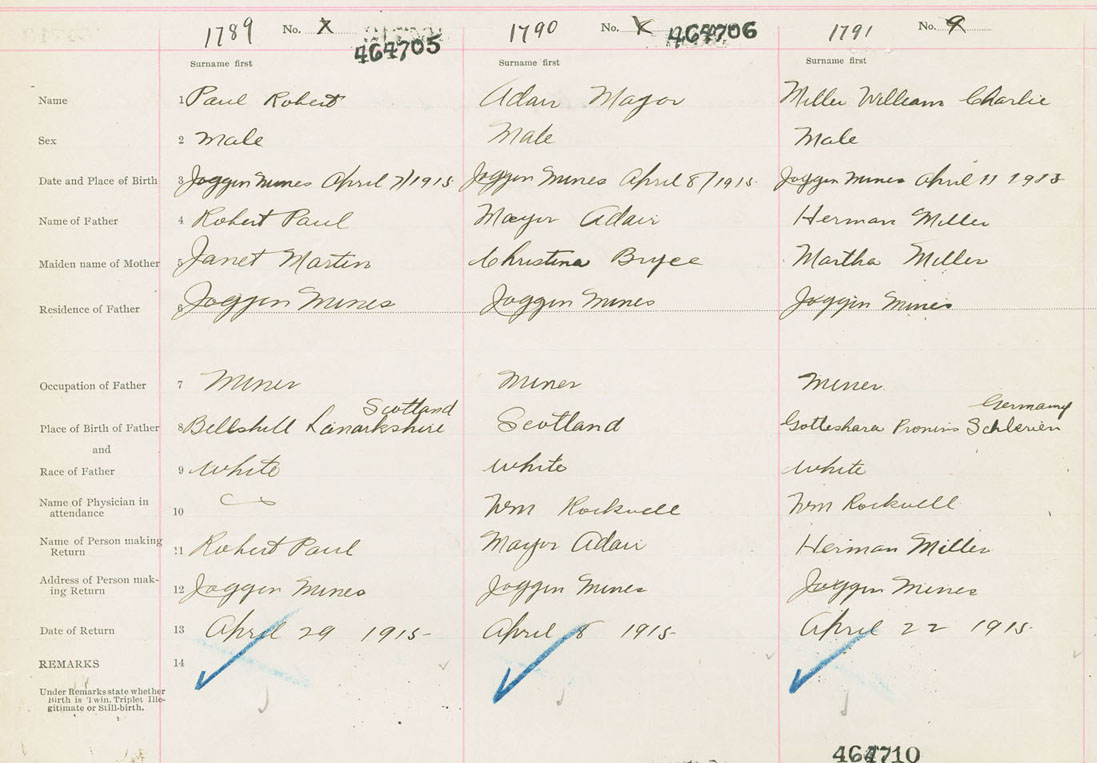 1789 No. X 464705 1790 No. X 464706 1791 No. 9
Surname first Surname first Surname first
Name 1 Paul Robert Adair Mayor Miller William Charlie
Sex 2 Male Male Male
Date and Place of Birth 3 Joggin Mines April 7/1915 Joggin Mines April 8/1915 Joggin Mines April 11 1915
Name of Father 4 Robert Paul Mayor Adair Herman Miller
Maiden name of Mother 5 Janet Martin Christina Bryce Martha Miller
Residence of Father 6 Joggin Mines Joggin Mines Joggin Mines
Occupation of Father 7 Miner Miner Miner
Scotland Germany
Place of Birth of Father 8 Bellshill Lanarkshire Scotland
and
Race of Father 9 White White White
Name of Physician in
attendance 10 Wm Rockwell Wm Rockwell
Name of Person making
Return 11 Robert Paul Mayor Adair Herman Miller
Address of Person mak-
ing Return 12 Joggin Mines Joggin Mines Joggin Mines
Date of Return 13 April 29 1915 April 8 1915 April 22 1915
REMARKS 14
Under Remarks state whether
Birth is Twin, Triplet Ille-
gitimate or Still-birth.
464710